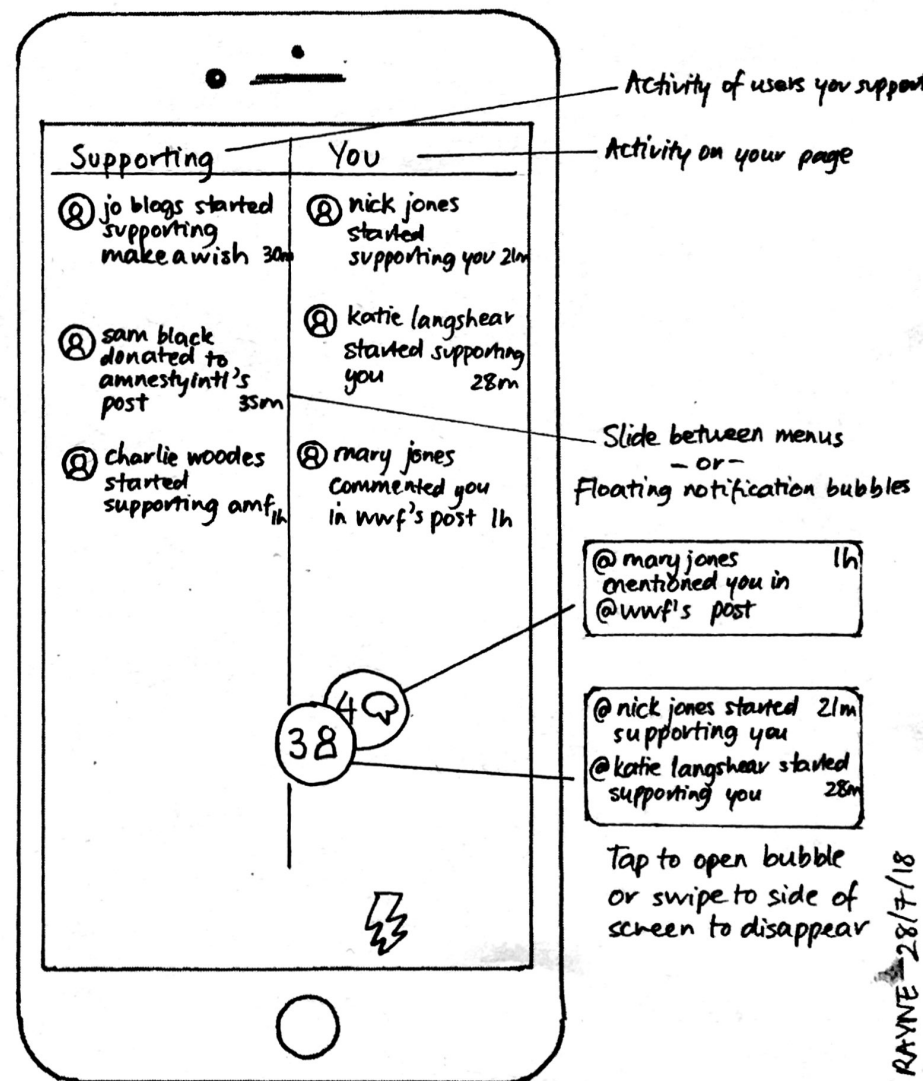 Activity of users you support
Activity on your page
Supporting
jo blogs started
supporting
make a wish 30m
sam black
donated to
amnestyintl's
post 35m
charlie woodes
started
supporting amf 1h
You
nick jones
started
supporting you 21m
katie langshear
started supporting
you 28m
mary jones
commented you
in wwf's post 1h
4
3
Slide between menus
- or -
Floating notification bubbles
@mary jones 1h
mentioned you in
@wwf's post
@nick jones started 21m
supporting you
@katie langshear started
supporting you 28m
Tap to open bubble
or swipe to side of
screen to disappear
RAYNE - 28/7/18